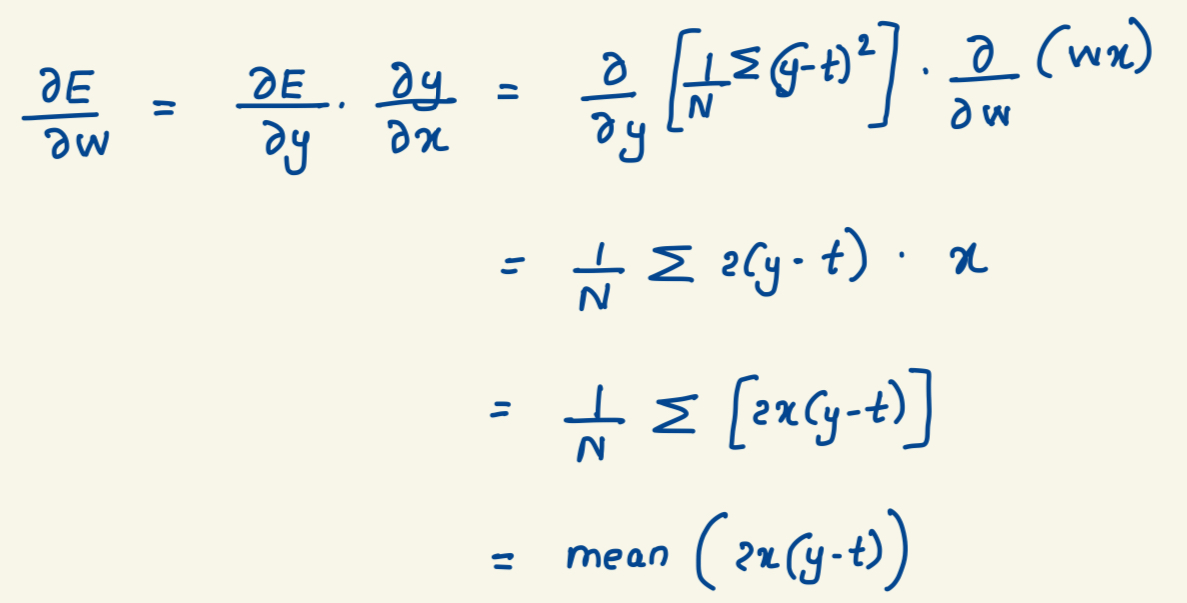 ∂E/∂w = ∂E/∂y · ∂y/∂x = ∂/∂y [1/N Σ (y-t)²] · ∂/∂w (wx)
= 1/N Σ 2(y-t) · x
= 1/N Σ [2x(y-t)]
= mean (2x(y-t))